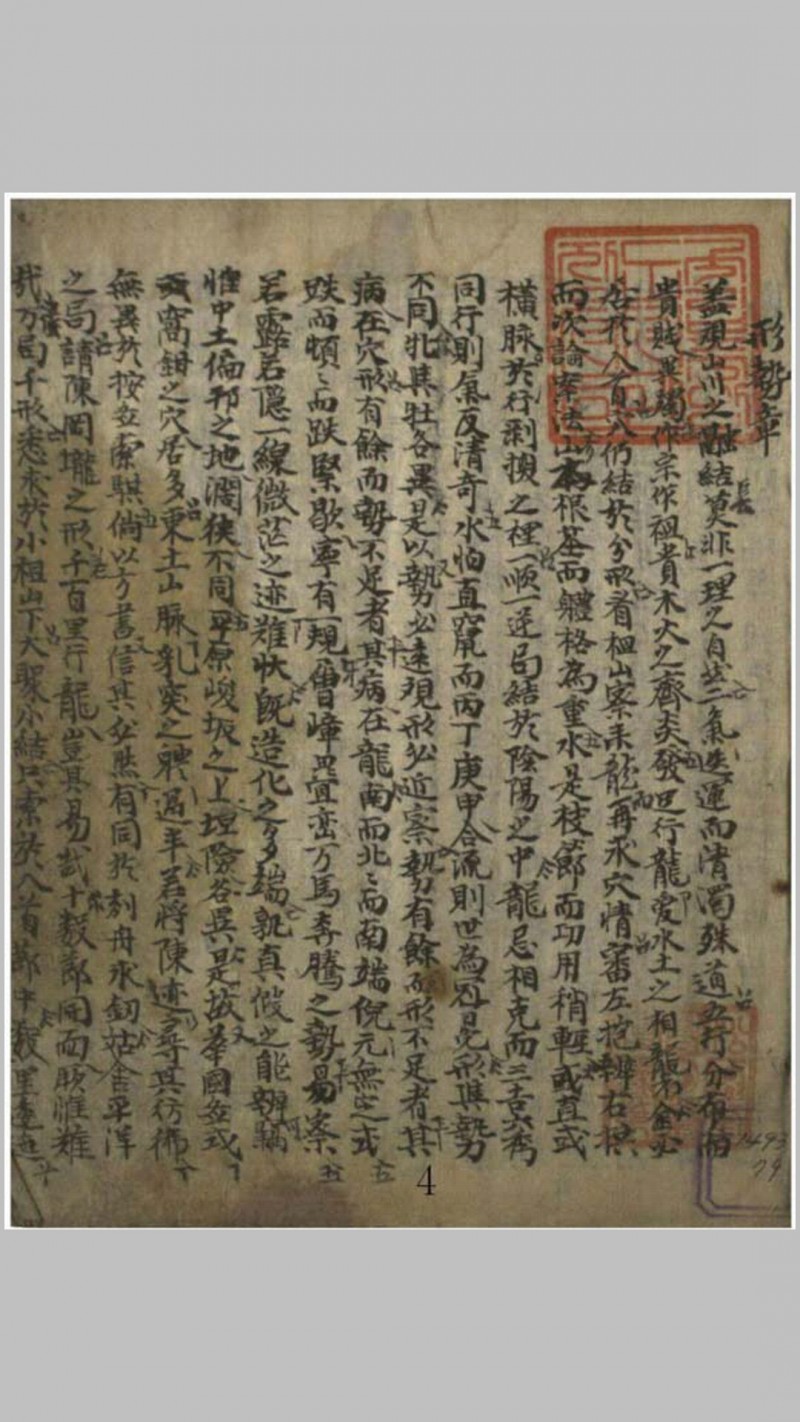 形勢章
盖观山川之融結莫非一理之自然二氣迭運而清濁殊道五行分布而
貴賤異獨作宗作祖貴木火之齊炎發足行龍愛水土之相
合於入首六八仍結於分形看祖山察來龍再求穴情審左抱辨右拱
而次論案法山為根基而體格為重水是枝節而功用稍輕或直或
橫脉於行剥換之裡一順一逆局結於陰陽之中龍忌相克而三吉六秀
同行則氣反清奇水怕直竄而丙丁庚甲合流則世為冠冕形與勢
不同牝與牡各異是以勢必遠观形必近察勢有餘而形不足者其
病在穴形有餘而勢不足者其病在龍南而北〻而南端倪元無定或
跌而頓〻而跌緊歇寧有一規層嶂疊巒万馬奔騰之勢易察
若露若隱一線微茫之迹难狀旣造化之多端孰真假之能辨竊
惟中土偏邦之地濶狹不同平原峻坂之上坦險各異是故華國
窩鉗之穴居多東土山脉乳突之稗過半若將陳迹尋其彷彿
無異於按圖索騏倘以方書信其必然有同於刻舟求釰姑舍平洋
之局請陳岡壠之形千百里行龍豈其易哉十數節開面厥惟难
哉万局千形悉求於小祖山下大聚小結只索於入首節中數里
4
1493
79